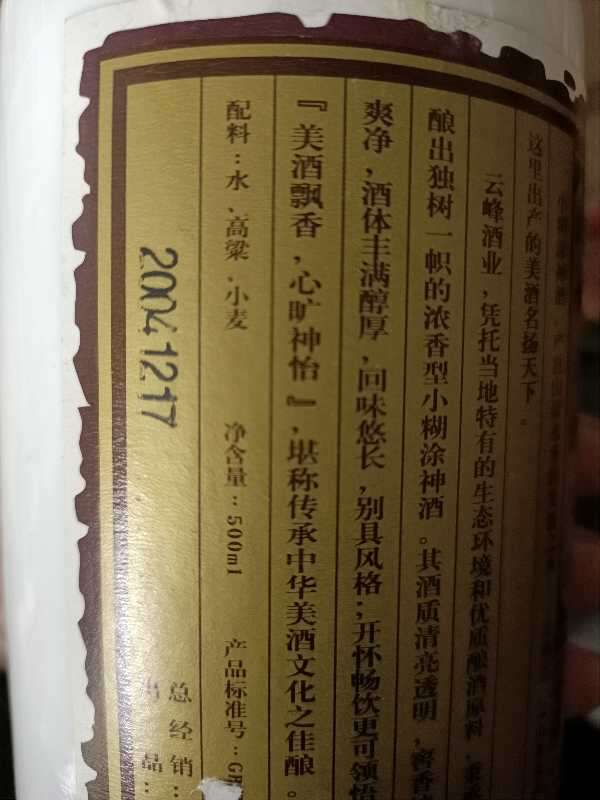 这里出产的美酒名扬天下。
云峰酒业，凭托当地特有的生态环境和优质酿酒原料，
酿出独树一帜的浓香型小糊涂神酒。其酒质清亮透明，窖香
爽净，酒体丰满醇厚，回味悠长，别具风格；开怀畅饮更可领悟
『美酒飘香，心旷神怡』，堪称传承中华美酒文化之佳酿。
配料：水、高粱、小麦 净含量：500ml 产品标准号：
20041217
总经销：
品：